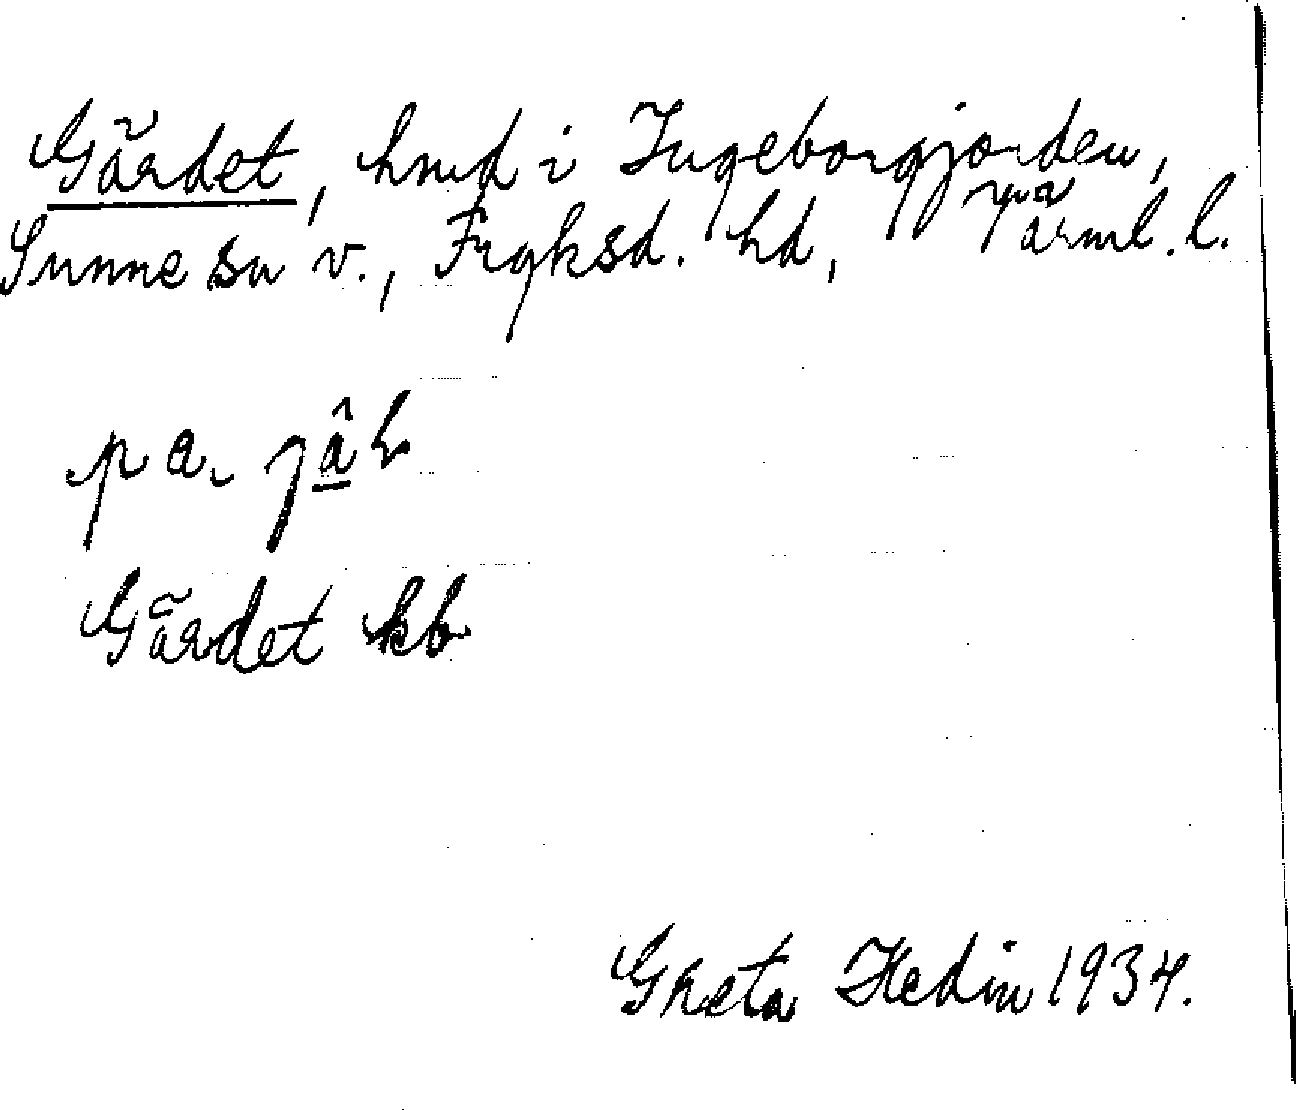 Gärdet, hmd i Ingeborgjorden,
Sunne sn v., Fryksd. hd, Värml. l.
Gärdet kb
Greta Hedin 1934.